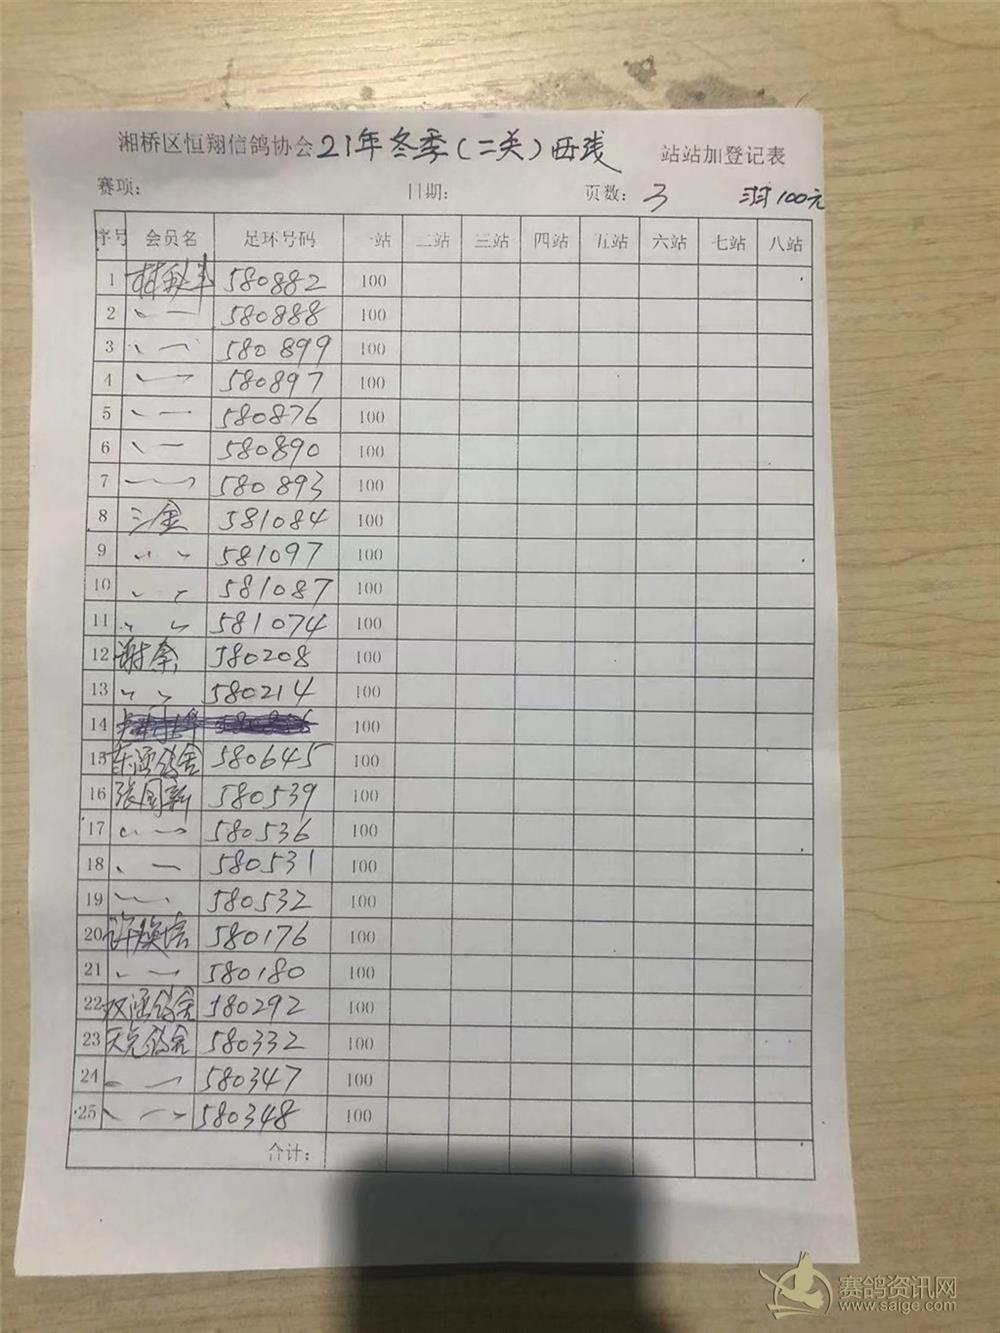 湘桥区恒翔信鸽协会21年冬季(二关)西线 站站加登记表
赛项: 日期: 页数: 3 100元
序号 会员名 足环号码 一站 二站 三站 四站 五站 六站 七站 八站
1 580882 100
2 580888 100
3 580899 100
4 580897 100
5 580876 100
6 580890 100
7 580893 100
8 三金 581084 100
9 581097 100
10 581087 100
11 581074 100
12 谢奈 580208 100
13 580214 100
14 100
15 东涵鸽舍 580645 100
16 张国新 580539 100
17 580536 100
18 580531 100
19 580532 100
20 许焕培 580176 100
21 580180 100
22 双涵鸽舍 580292 100
23 天光鸽舍 580332 100
24 580347 100
25 580348 100
合计:
赛鸽资讯网
www.saige.com